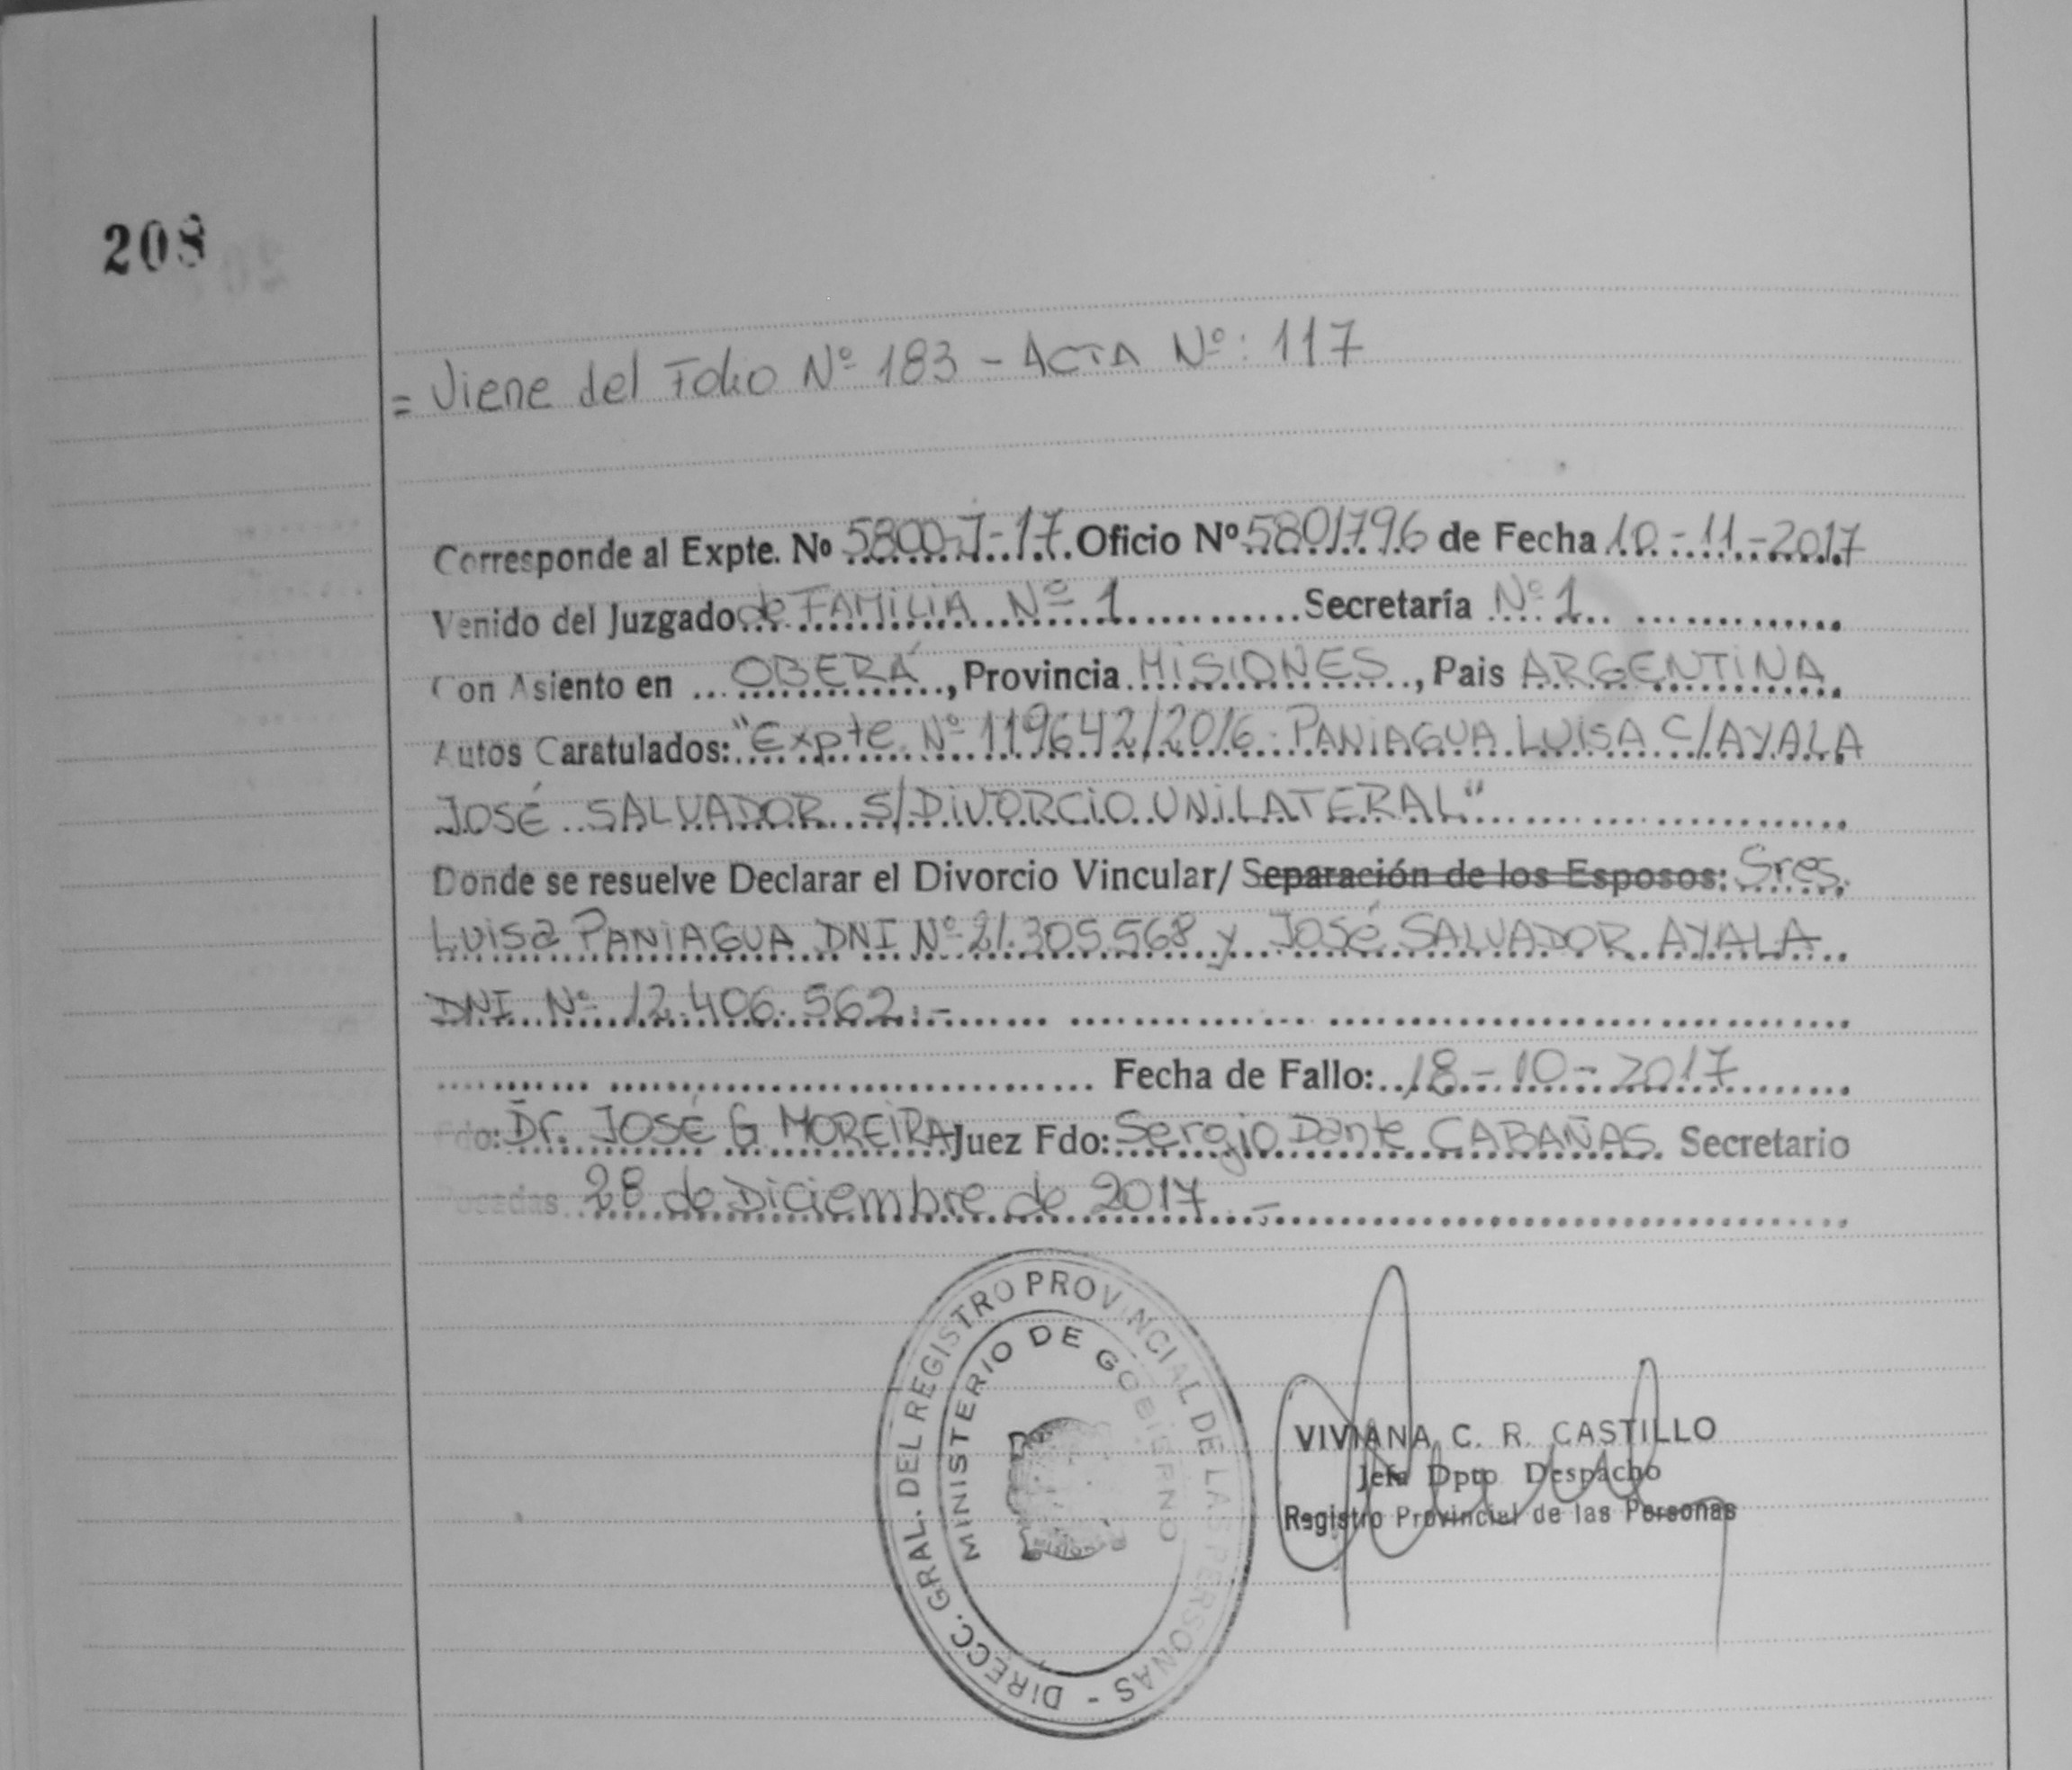 208
= Viene del Folio Nº 183 - ACTA Nº: 117
Corresponde al Expte. Nº 5800-J-17. Oficio Nº 5801796 de Fecha 10-11-2017
Venido del Juzgado de FAMILIA Nº 1 Secretaría Nº 1
Con Asiento en OBERÁ, Provincia MISIONES, Pais ARGENTINA
Autos Caratulados: "Expte. Nº 119642/2016. PANIAGUA LUISA C/AYALA
JOSÉ SALVADOR S/DIVORCIO UNILATERAL"
Donde se resuelve Declarar el Divorcio Vincular/ Separación de los Esposos: Sres.
LUISA PANIAGUA DNI Nº 21.305.568 y JOSÉ SALVADOR AYALA
DNI Nº 12.406.562.-
Fecha de Fallo: 18-10-2017
Fdo: Dr. JOSÉ G MOREIRA Juez Fdo: Sergio Dante CABAÑAS. Secretario
Posadas 28 de Diciembre de 2017.-
DIRECC. GRAL. DEL REGISTRO PROVINCIAL DE LAS PERSONAS -
MINISTERIO DE GOBIERNO
VIVIANA C. R. CASTILLO
Jefa Dpto Despacho
Registro Provincial de las Personas